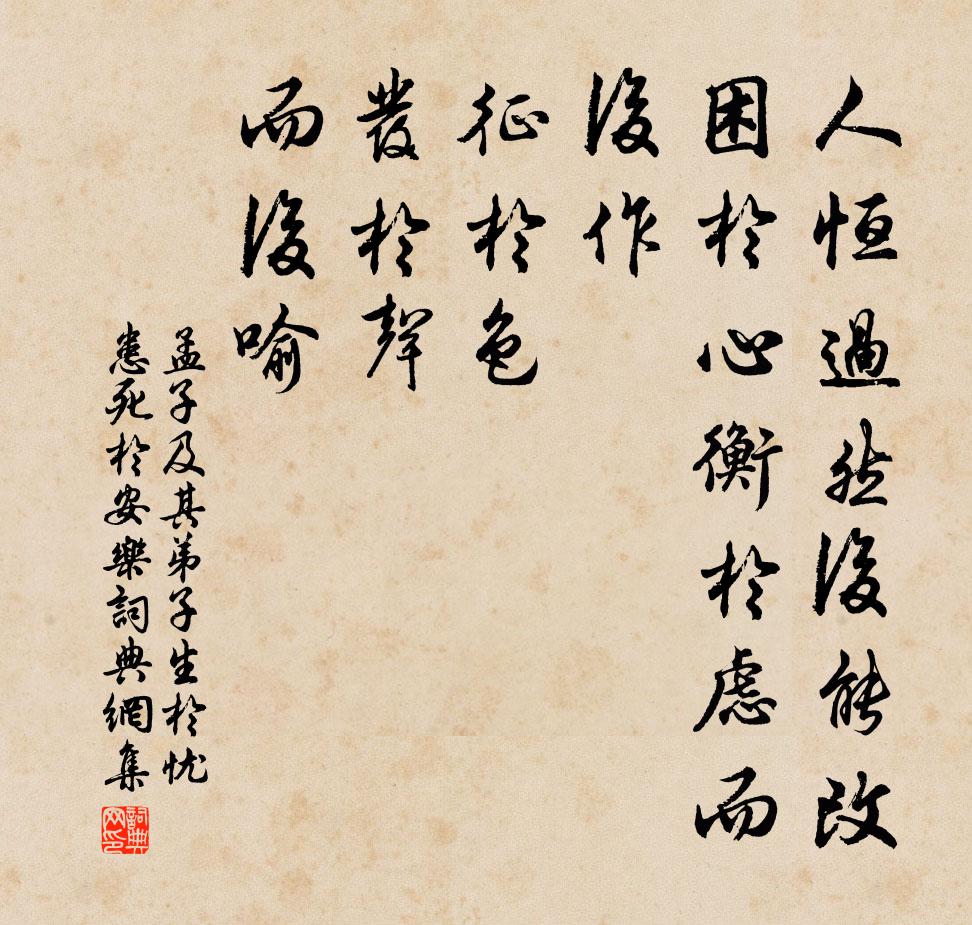 人恒過然後能改
困於心衡於慮而
後作
征於色
發於聲
而後喻
孟子及其弟子生於忧
患死於安樂詞典網集
詞典
网印